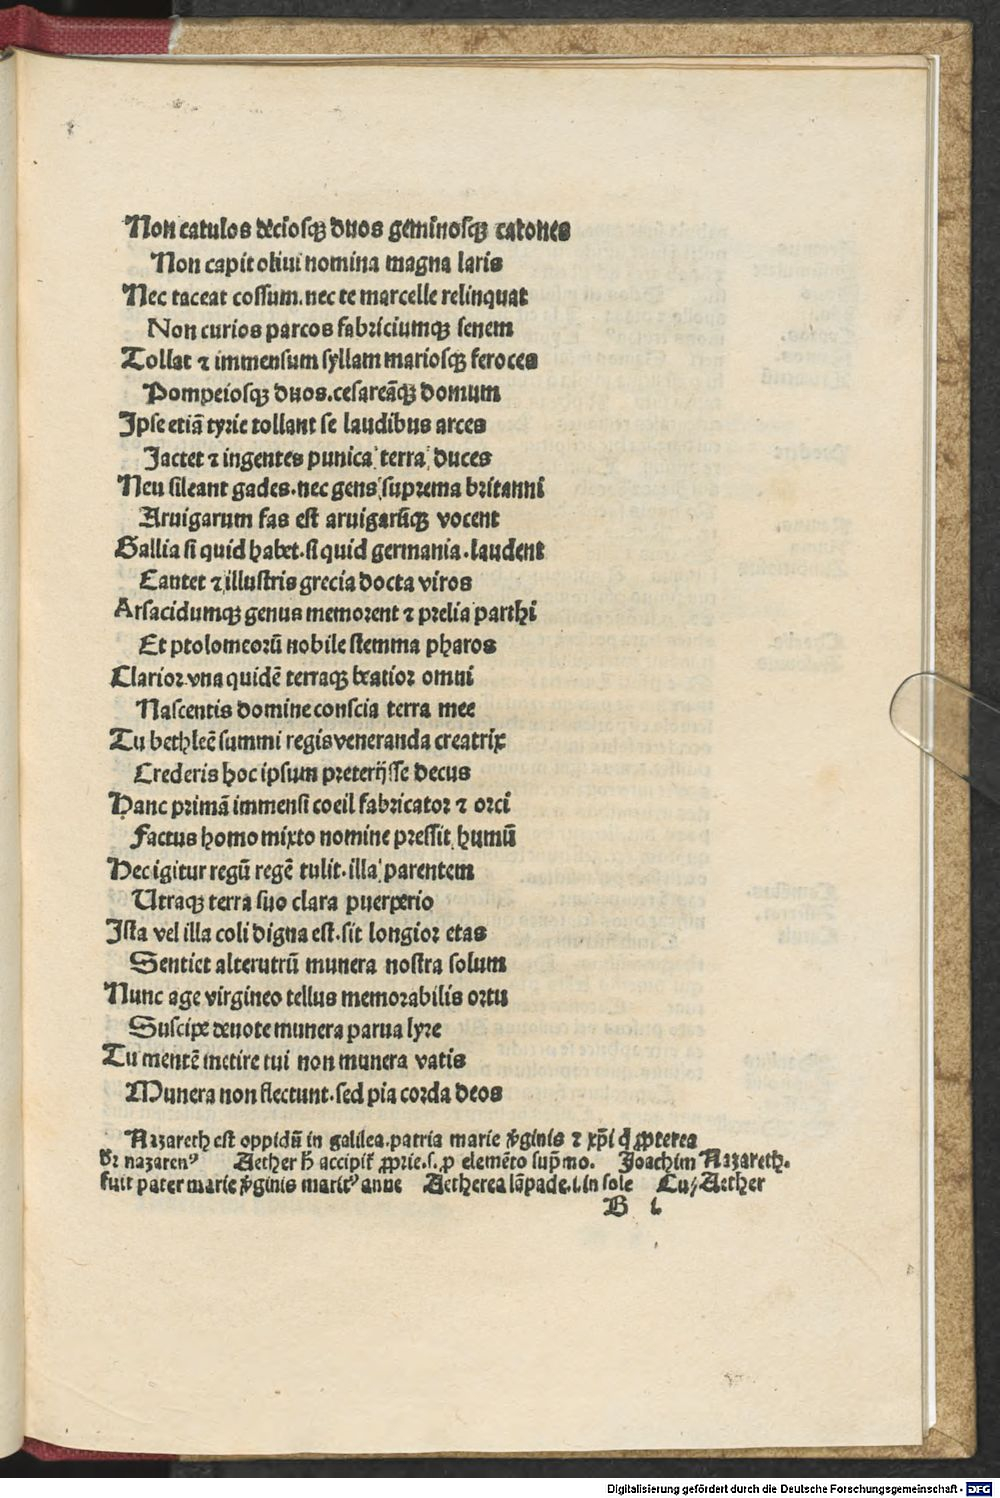 Non catulos deciosqꝫ duos geminosqꝫ catones
Non capit oliui nomina magna laris
Nec taceat cossum. nec te marcelle relinquat
Non curios parcos fabriciumqꝫ senem
Tollat ⁊ immensum syllam mariosqꝫ feroces
Pompeiosqꝫ duos. cesareãqꝫ domum
Ipse etiã tyrie tollant se laudibus arces
Jactet ⁊ ingentes punica terra duces
Neu sileant gades. nec gens suprema britanni
Aruigarum fas est aruigarũqꝫ vocent
Gallia si quid habet. si quid germania. laudent
Cantet ⁊ illustris grecia docta viros
Arsacidumqꝫ genus memorent ⁊ prelia parthi
Et ptolomeorũ nobile stemma pharos
Clarior vna quidẽ terraqꝫ beatior omni
Nascentis domine conscia terra mee
Tu bethleẽ summi regis veneranda creatrix
Crederis hoc ipsum preterijsse decus
Hanc primã immensi coeil fabricator ⁊ orci
Factus homo mixto nomine pressit humũ
Hec igitur regũ regẽ tulit. illa parentem
Utraqꝫ terra suo clara puerperio
Ista vel illa coli digna est. sit longior etas
Sentiet alterutrũ munera nostra solum
Nunc age virgineo tellus memorabilis ortu
Suscipe deuote munera parua lyre
Tu mentẽ metire tui non munera vatis
Munera non flectunt. sed pia corda deos
Nazareth est oppidũ in galilea. patria marie v̓ginis ⁊ xp̃i q̃ ꝓpterea
dr̃ nazarenꝰ Aether h̃ accipit̃ ꝓprie. s. ꝓ elemẽto sup̃mo. Joachim Nazareth.
fuit pater marie v̓ginis maritꝰ anne Aetherea lãpade. i. in sole Cuꝫ Aether
B i
Digitalisierung gefördert durch die Deutsche Forschungsgemeinschaft - DFG